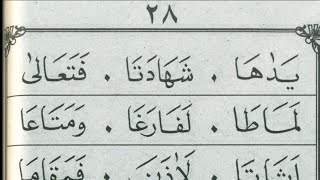 ٢٨
يَدٰهَا . شَهَادَتَا . فَتَعَالٰى
لَمَاطَا . لَفَارَغَا . وَمَتَاعَا
فَمَقَامَا